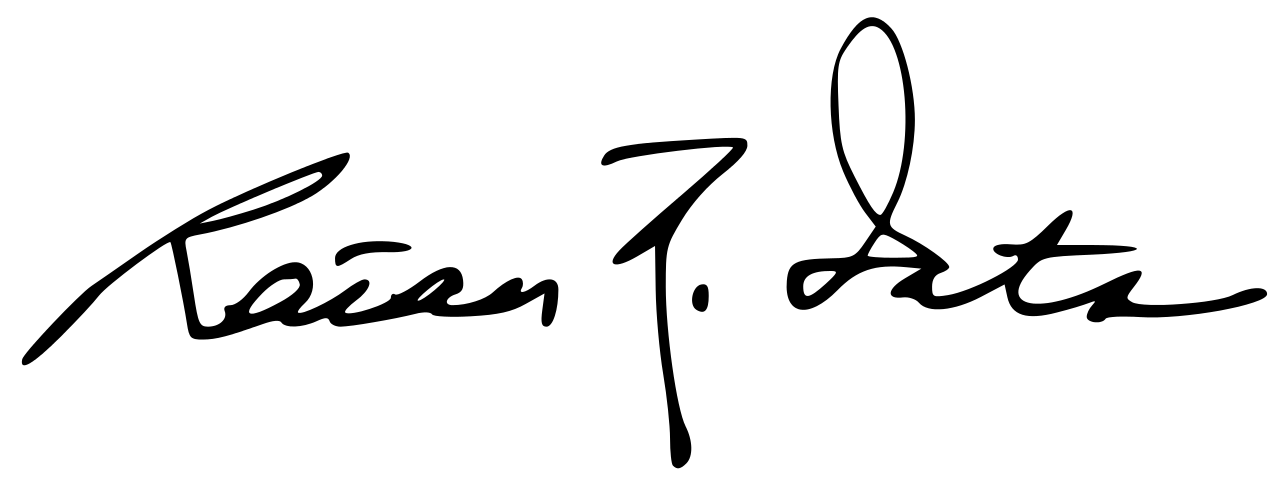 Ratan N. Tata